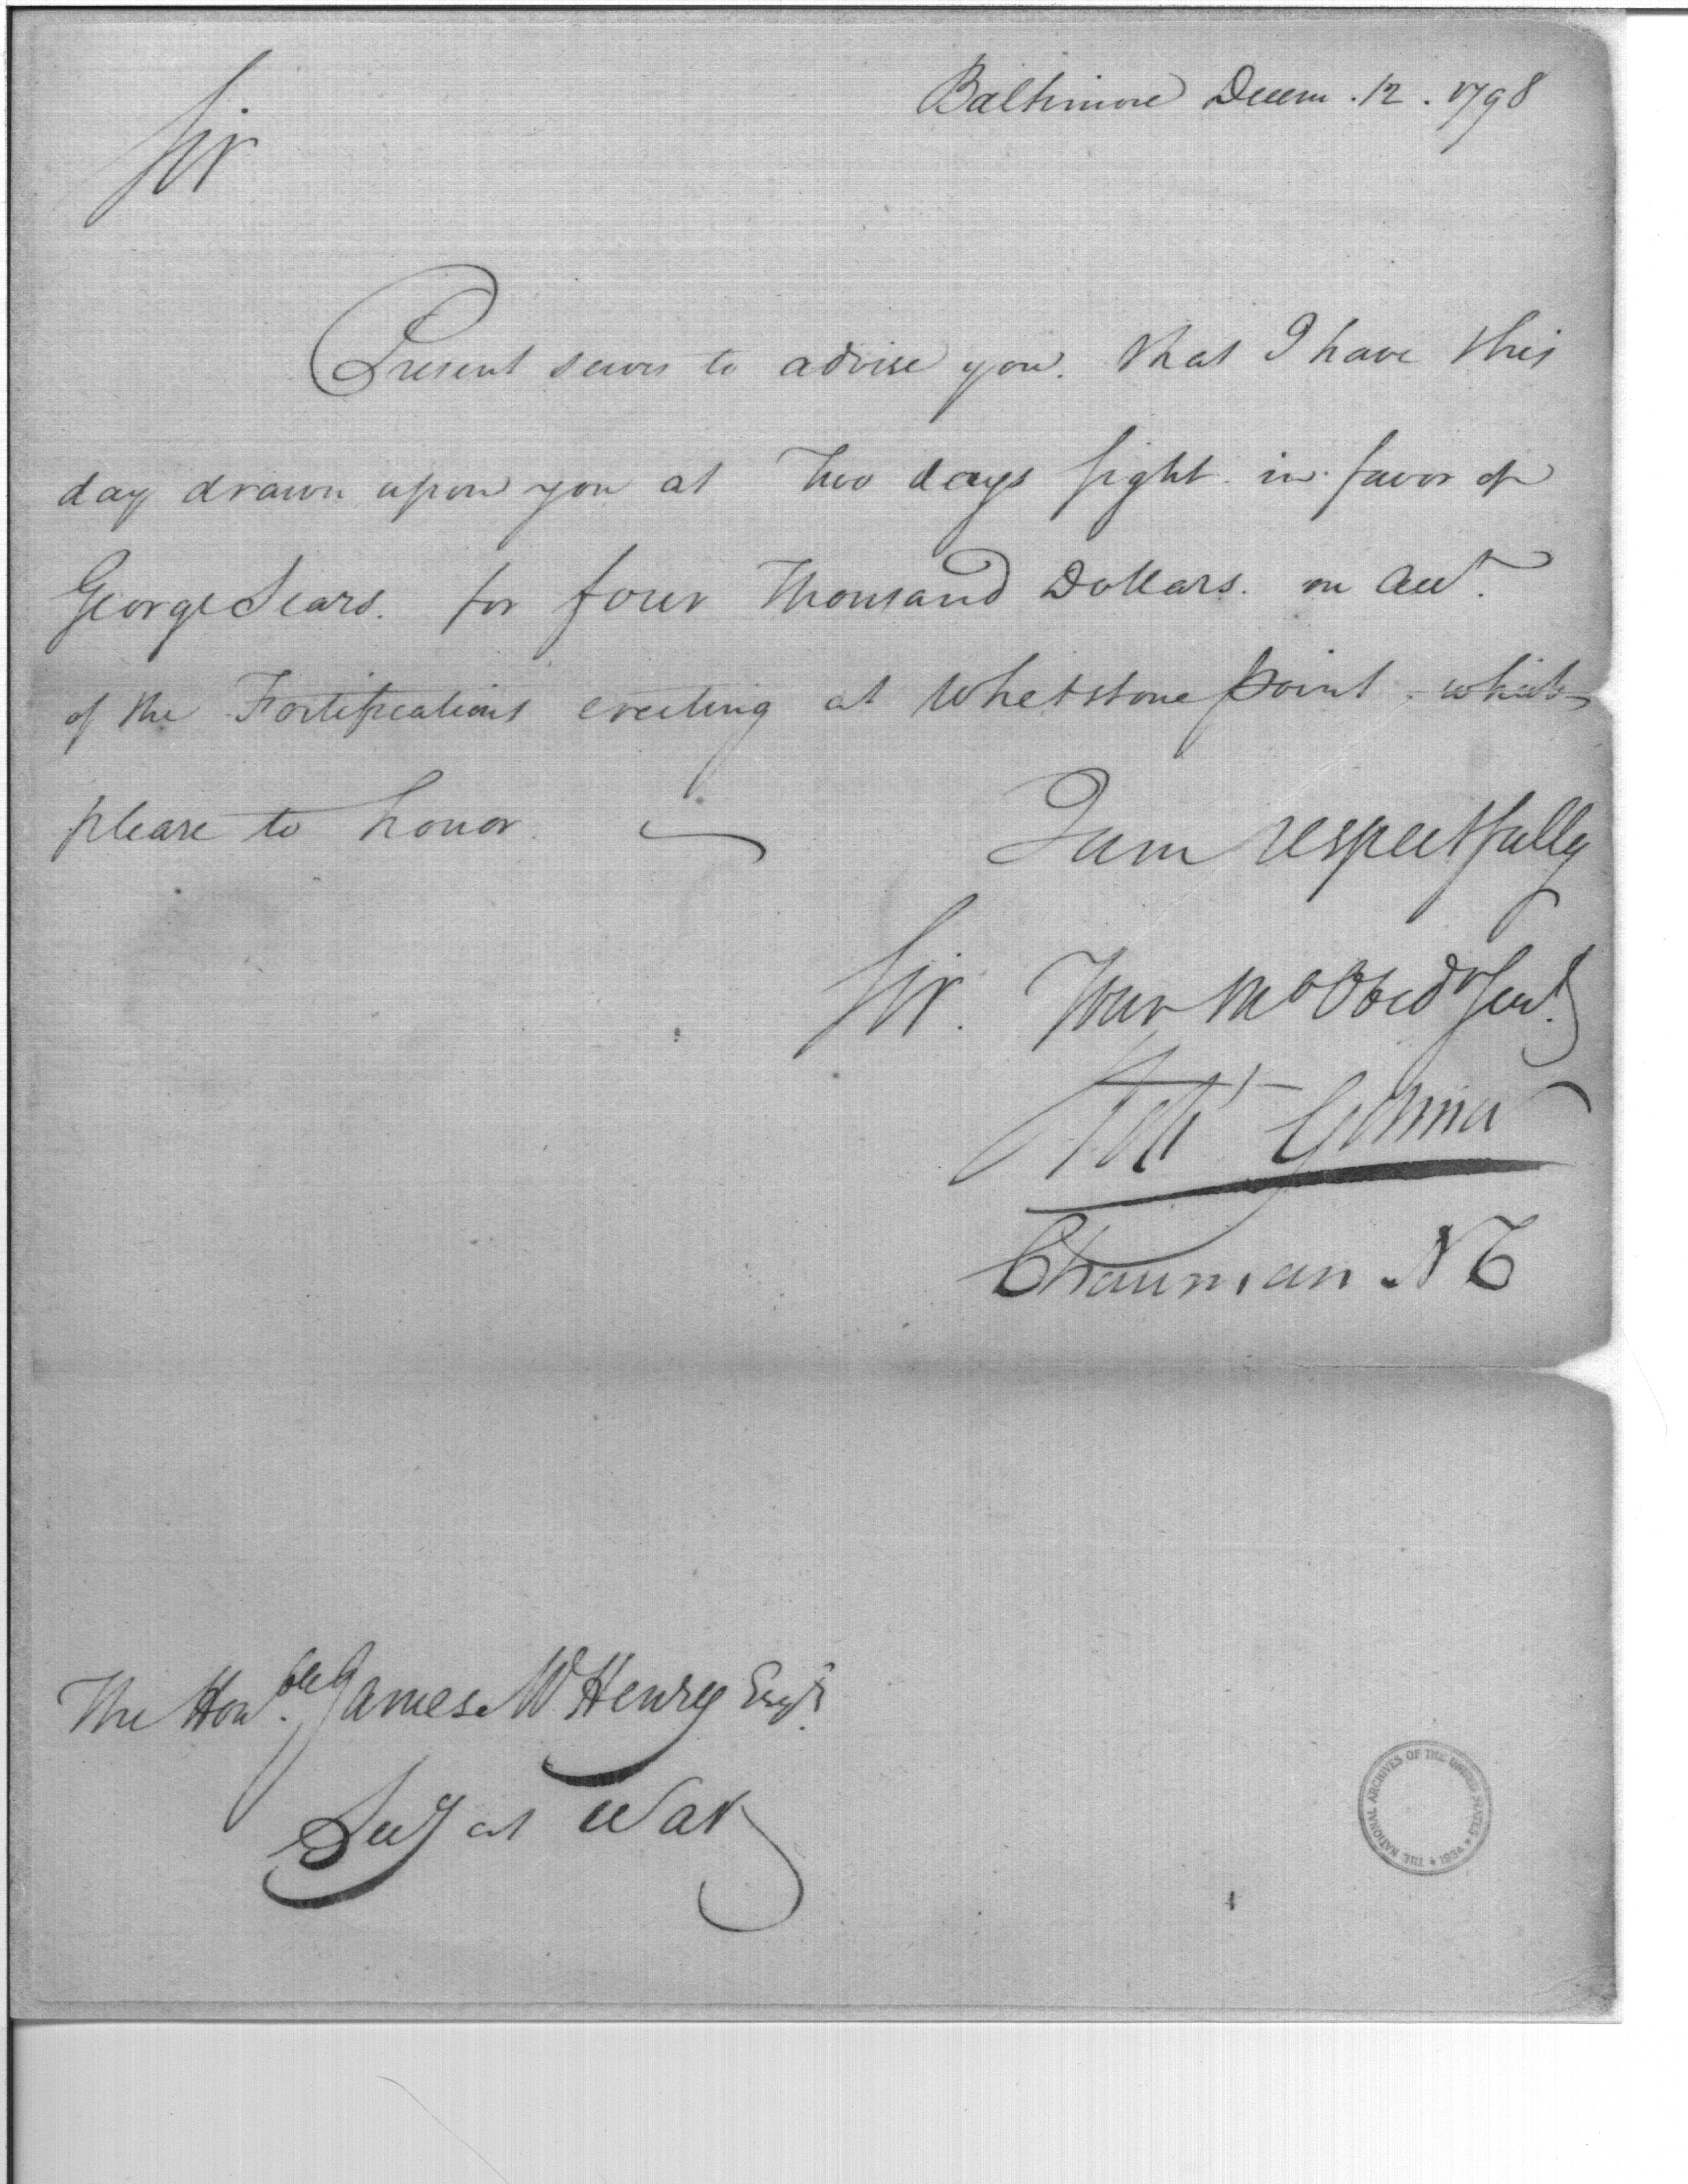 Baltimore Decem. 12. 1798
Sir
Present serves to advise you. that I have this
day drawn upon you at Two days sight in favor of
George Sears. for four Thousand Dollars. on acct.
of the Fortifications erecting at Whetstone point. which
please to honor.
I am respectfully
Sir. Your Mo Obed Servt.
Robt Gilmor
Chairman N C
The Honble. James McHenry Esqr.
Secy at War
THE NATIONAL ARCHIVES OF THE UNITED STATES * 1934 *